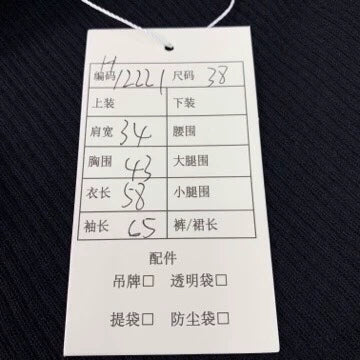 编码 H12221 尺码 38
上装 下装
肩宽 34 腰围
胸围 43 大腿围
衣长 58 小腿围
袖长 65 裤/裙长
配件
吊牌□ 透明袋□
提袋□ 防尘袋□